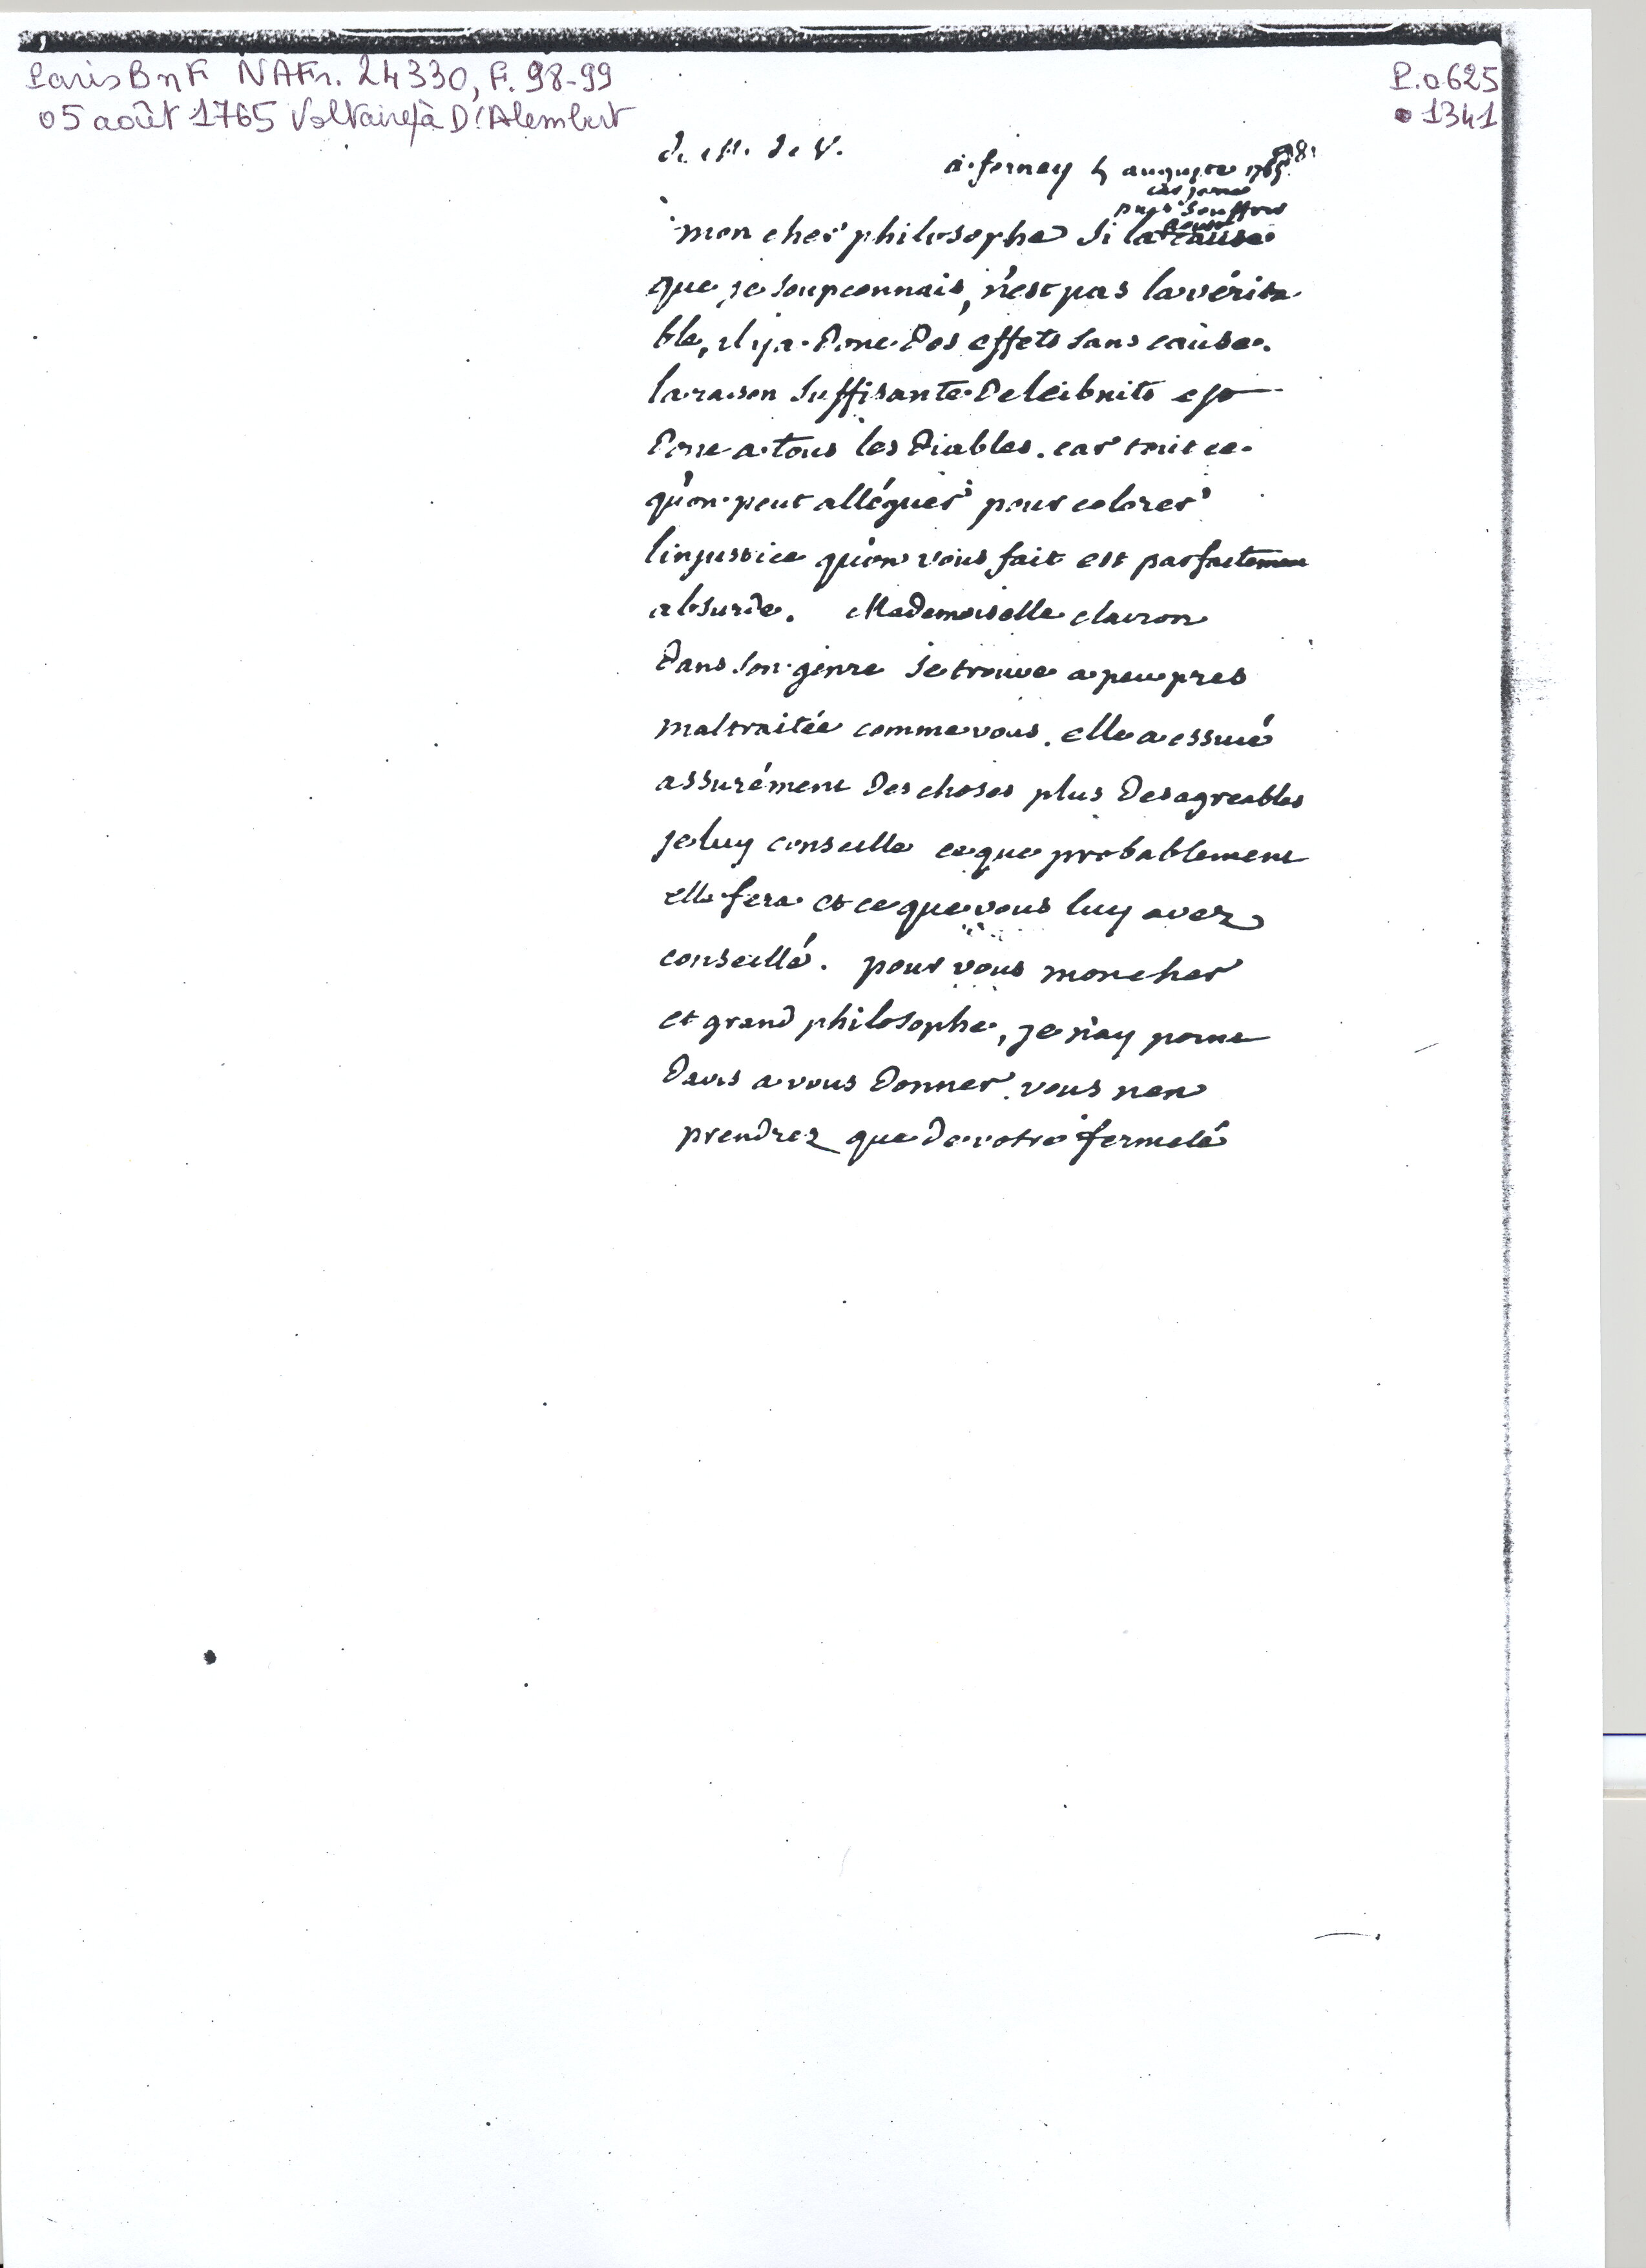 Paris BnF NAFr. 24330, F. 98-99
05 août 1765 Voltaire à D'Alembert
P. 0625
1341
de Mr. de V.
98.
à ferney 5 auguste 1765
car je ne
puis souffrir
aoust
mon cher philosophe si la cause
que je soupconnais, n'est pas la vérita
ble, il y a donc des effets sans cause.
la raison suffisante de leibnits est
donc a tous les diables. car tout ce
qu'on peut alléguer pour colorer
linjustice qu'on vous fait est parfaitement
absurde. Mademoiselle clairon
dans son genre se trouve a peu pres
maltraitée comme vous. elle a essuié
assurément des choses plus desagreables
je luy conseille ce que probablement
elle fera et ce que vous luy avez
conseillé. pour vous mon cher
et grand philosophe, je n'ay point
davis a vous donner. vous nen
prendrez que de votre fermeté